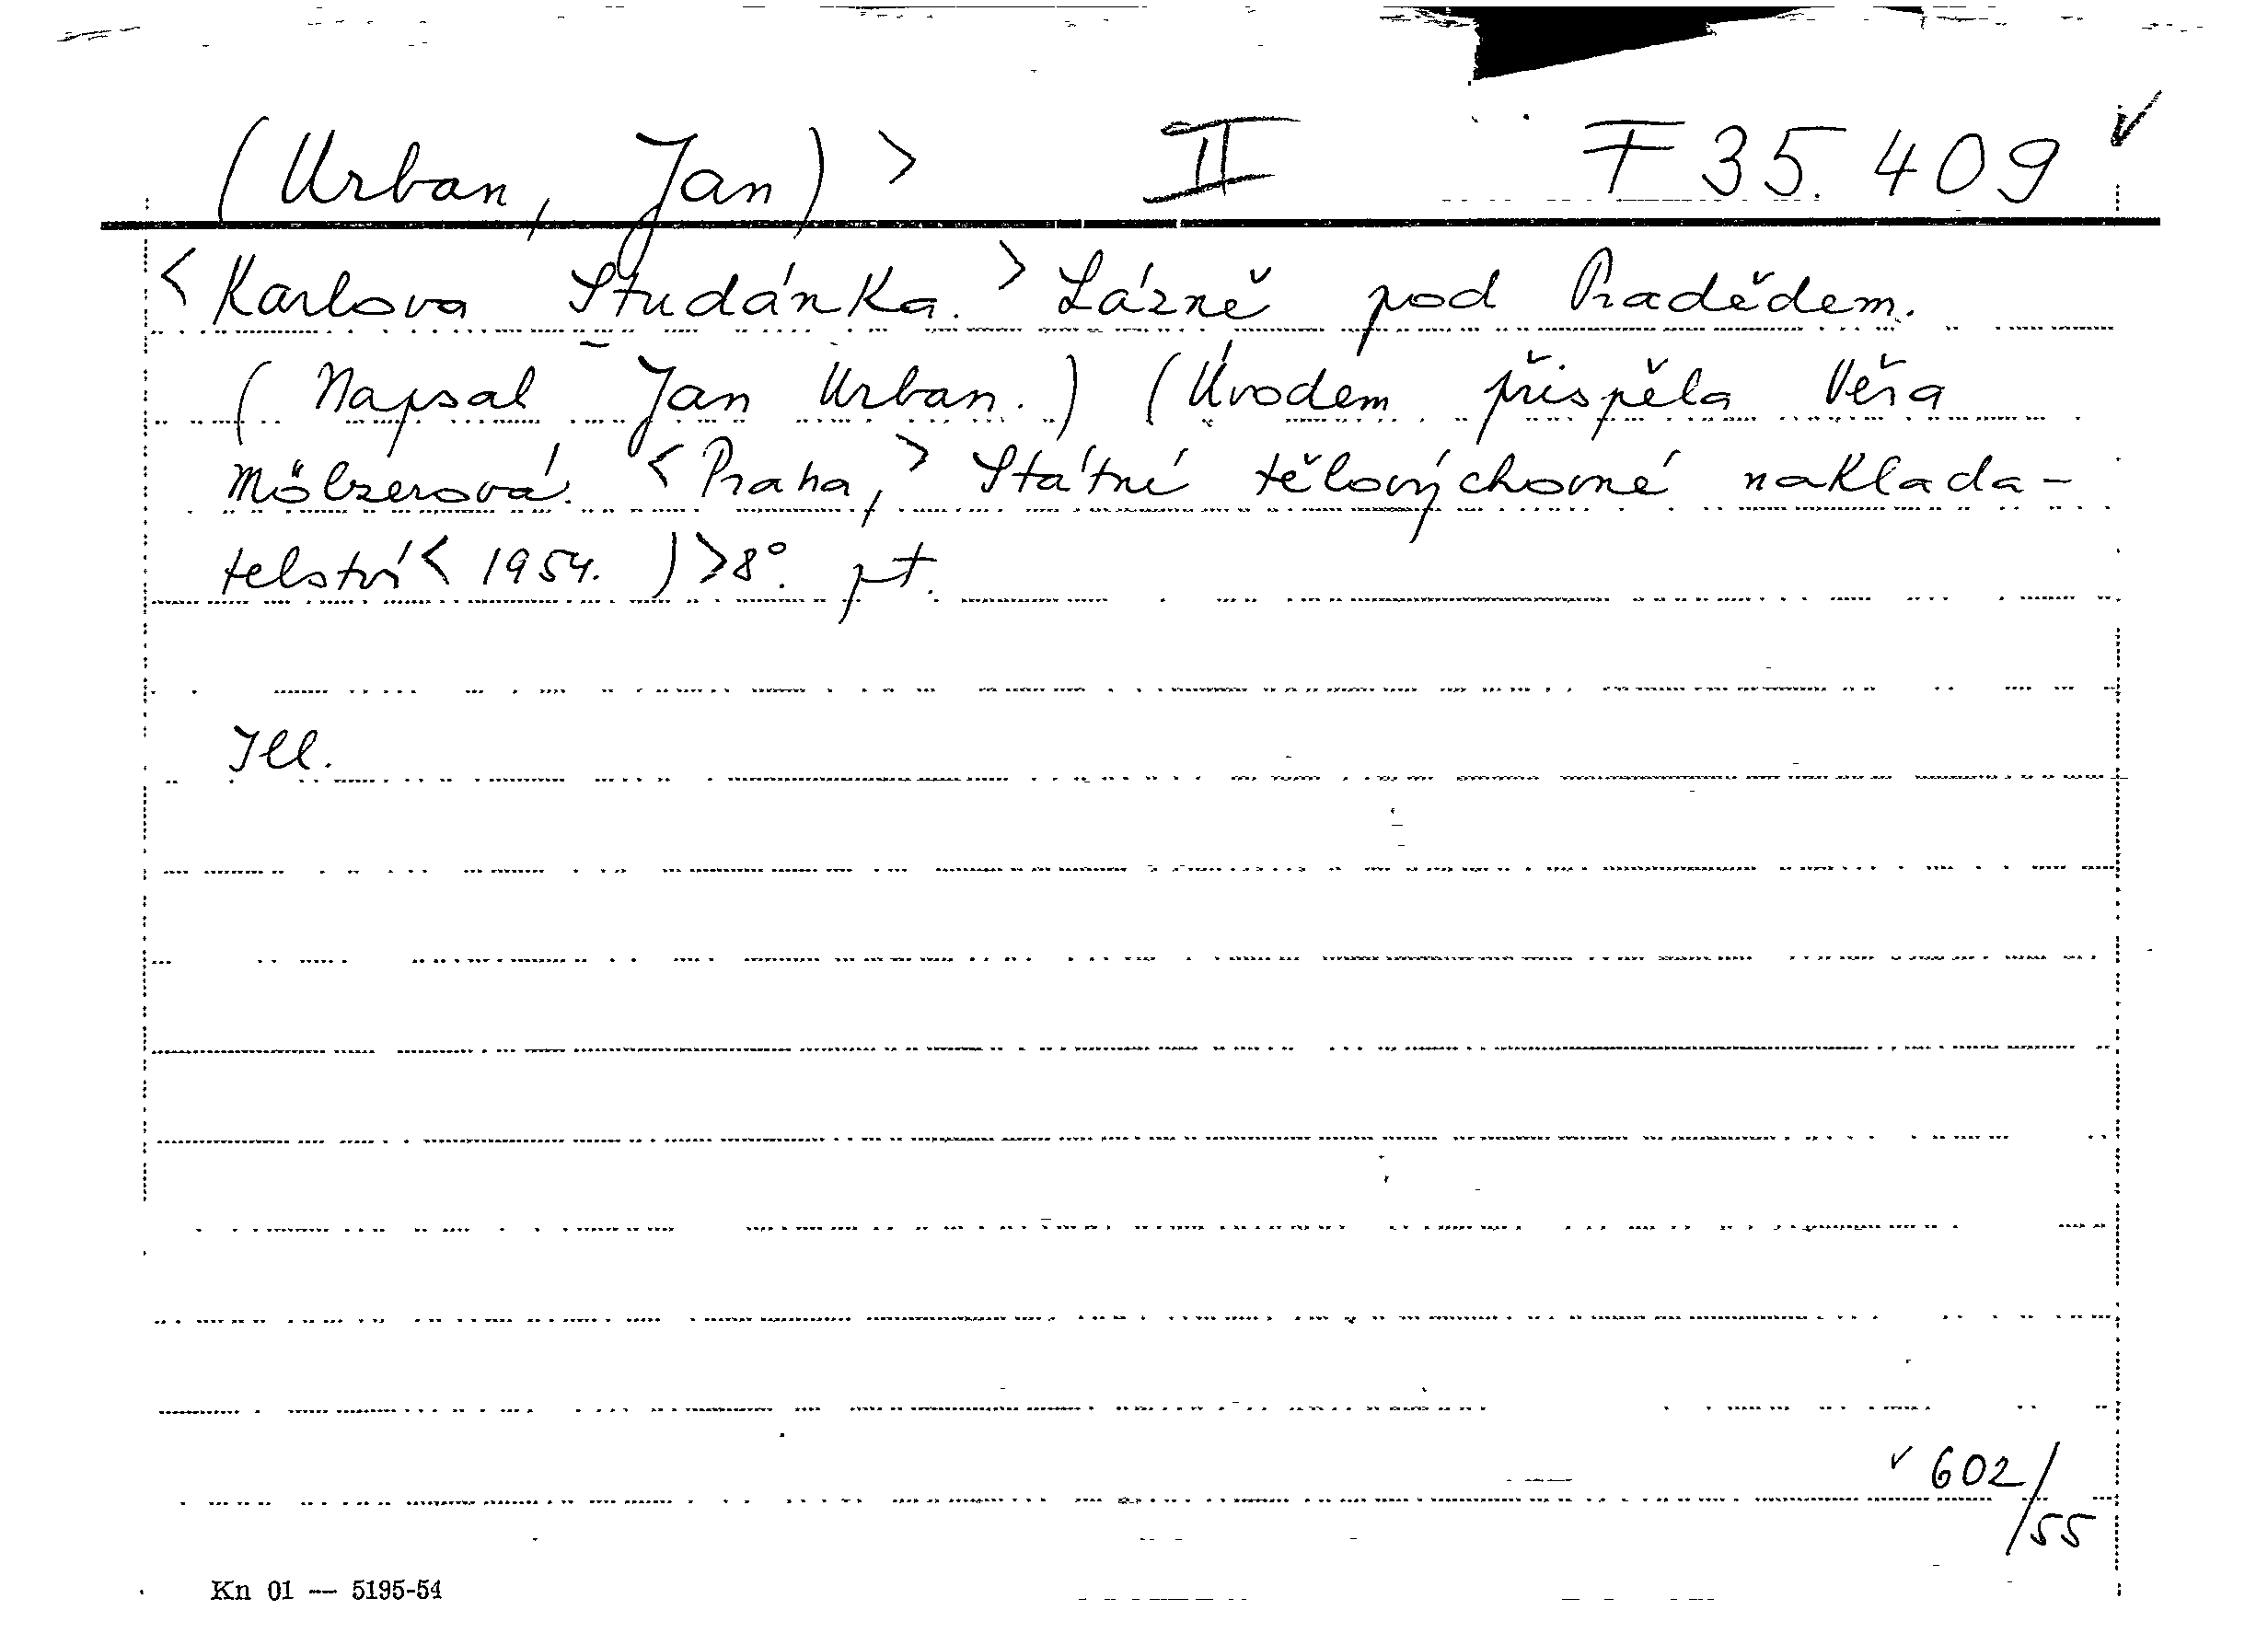 (Urban, Jan) > II F 35.409
<Karlova Studánka.> Lázně pod Pradědem.
(Napsal Jan Urban.) (Úvodem přispěla Věra
Mölzerová. <Praha,> Státní tělovýchovné naklada-
telství < 1954. )> 8°. pt.
Ill.
602/55
Kn 01 — 5195-54